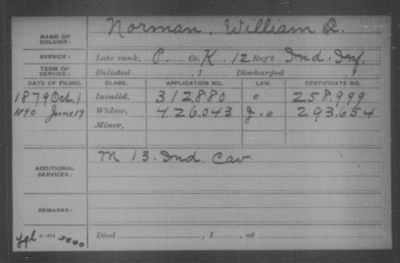 NAME OF SOLDIER: Norman, William
SERVICE: Late rank, P. Co. K, 12 Reg't Ind. Inf.
TERM OF SERVICE: Enlisted , 1 Discharged , 1
DATE OF FILING. CLASS. APPLICATION NO. LAW. CERTIFICATE NO.
1879 Oct. 1 Invalid, 312880 o 258.999
1890 June 17 Widow, 426.043 293.654
Minor,
ADDITIONAL SERVICES: M 13. Ind. Cav.
REMARKS:
Died , 1 , at